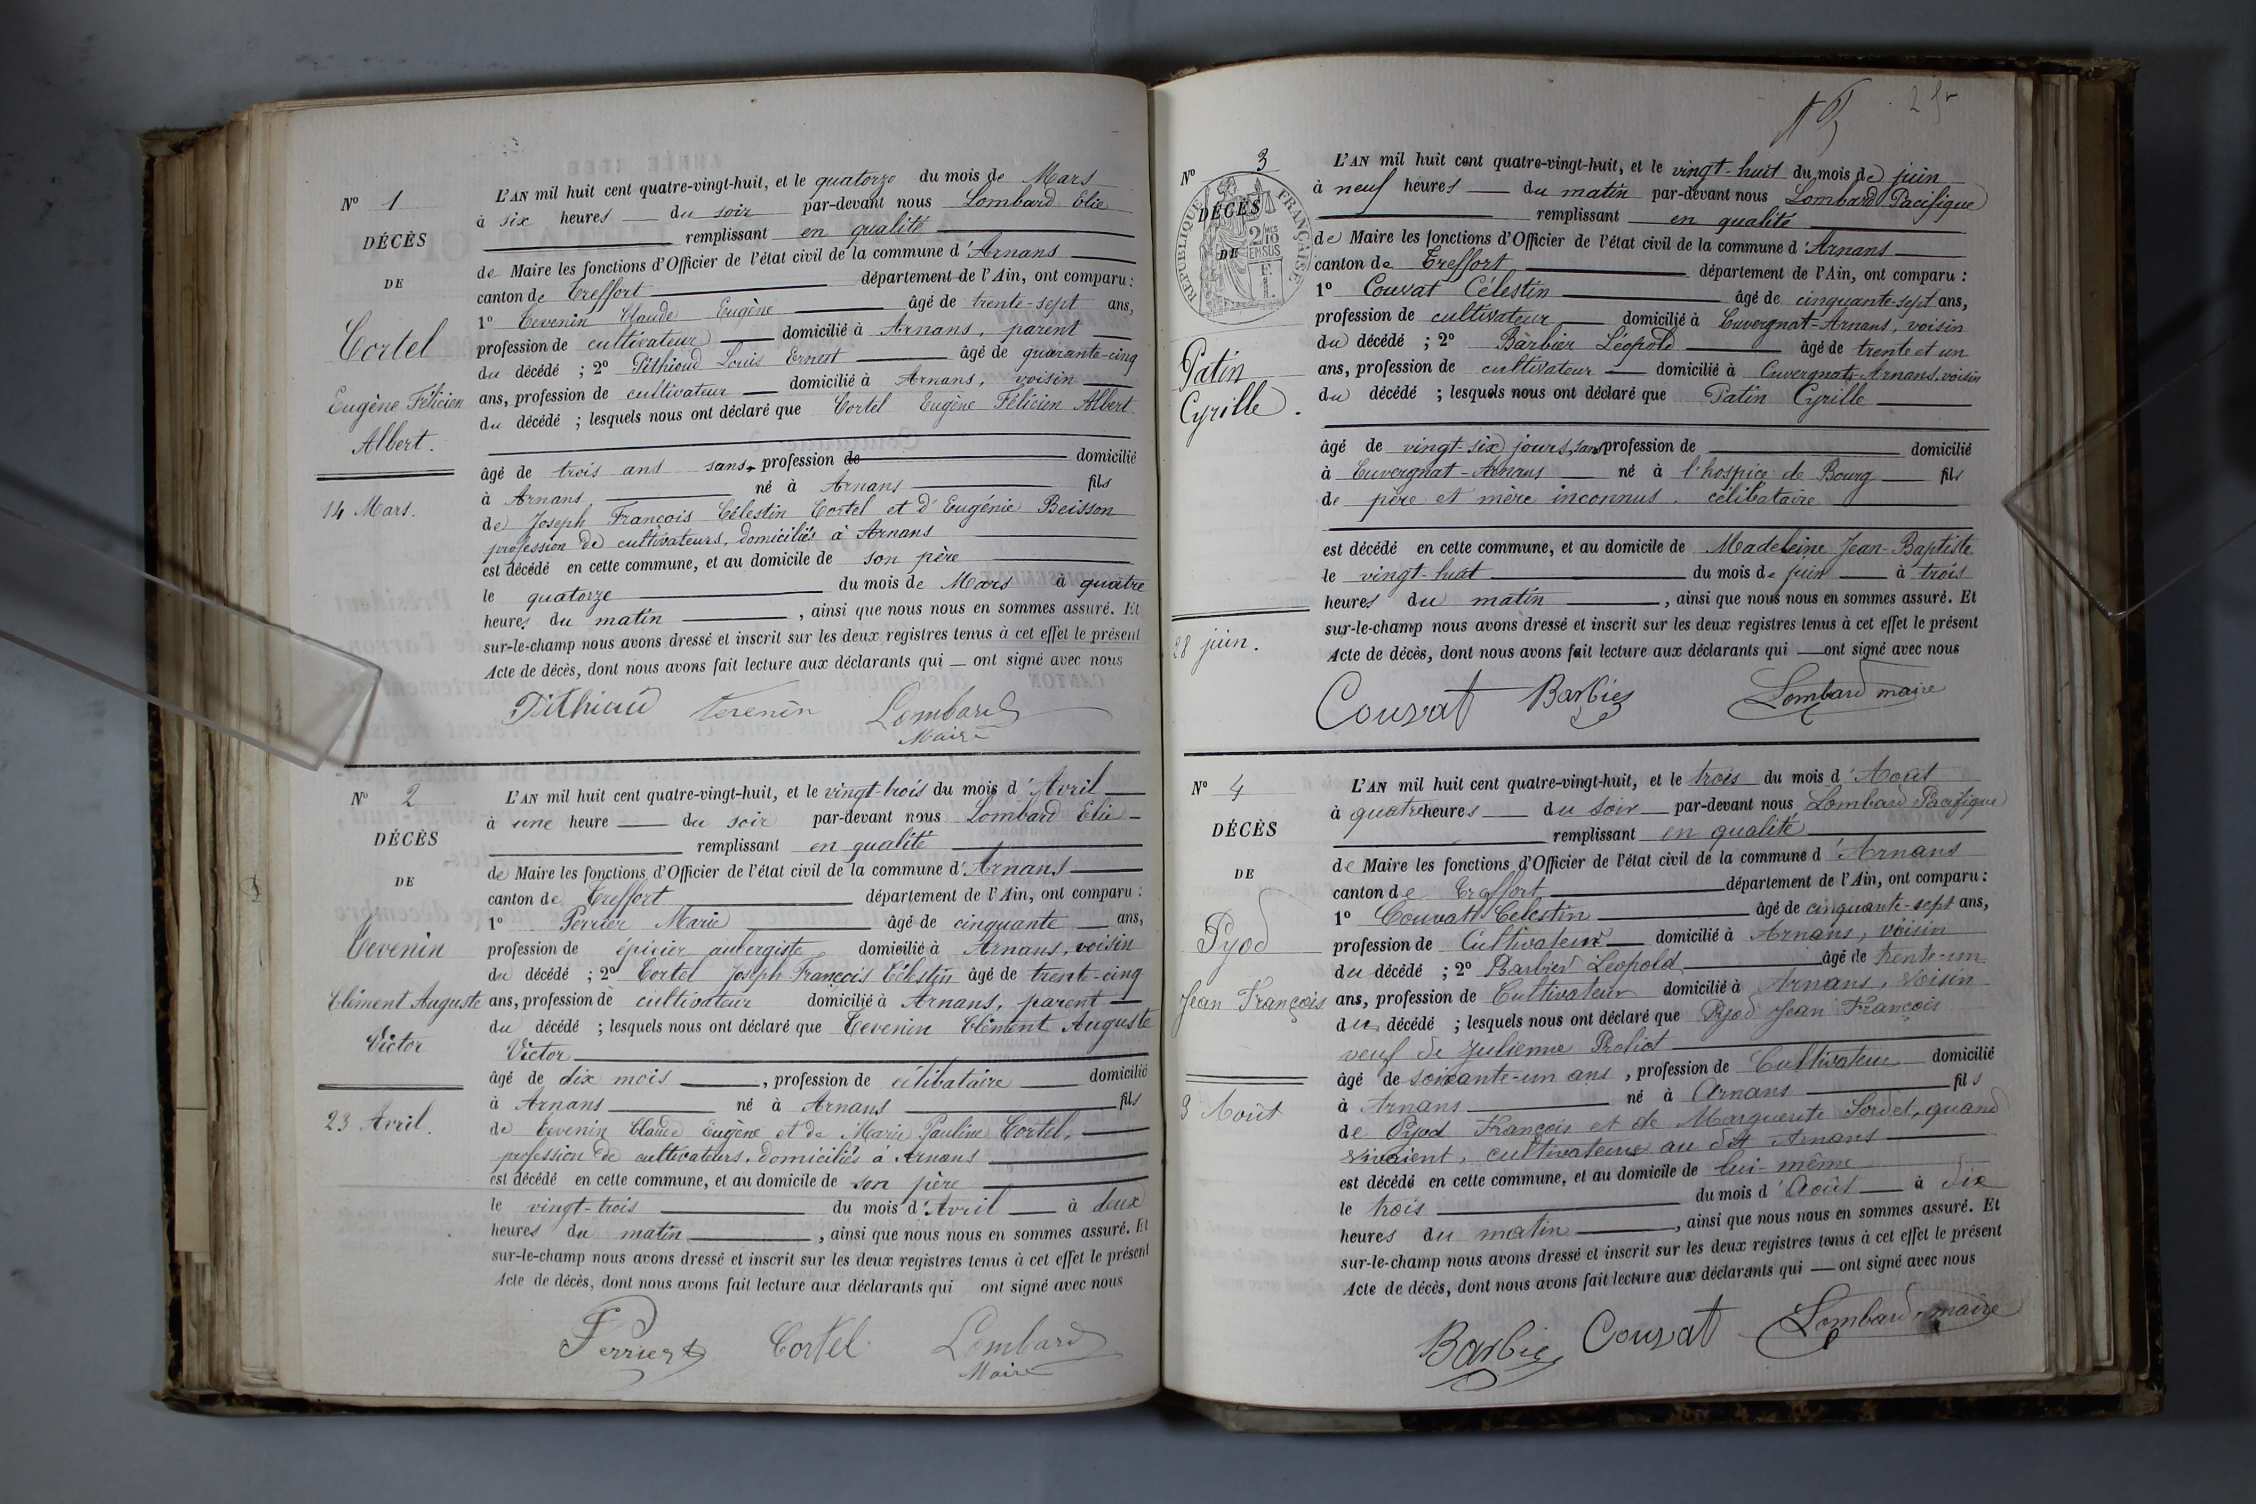 N° 1
DÉCÈS
DE
Cortel
Eugène Félicien
Albert.
14 Mars.
L'AN mil huit cent quatre-vingt-huit, et le quatorze du mois de Mars
à six heures du soir par-devant nous Lombard Elie
remplissant en qualité
de Maire les fonctions d'Officier de l'état civil de la commune d'Arnans
canton de Treffort département de l'Ain, ont comparu :
1° Tevenin Claude Eugène âgé de trente-sept ans,
profession de cultivateur domicilié à Arnans, parent
du décédé ; 2° Pithioud Louis Ernest âgé de quarante-cinq
ans, profession de cultivateur domicilié à Arnans, voisin
du décédé ; lesquels nous ont déclaré que Cortel Eugène Félicien Albert.
âgé de trois ans sans profession de domicilié
à Arnans, né à Arnans fils
de Joseph François Célestin Cortel et d'Eugénie Beisson
profession de cultivateurs, domiciliés à Arnans
est décédé en cette commune, et au domicile de son père
le quatorze du mois de Mars à quatre
heures du matin, ainsi que nous nous en sommes assuré. Et
sur-le-champ nous avons dressé et inscrit sur les deux registres tenus à cet effet le présent
Acte de décès, dont nous avons fait lecture aux déclarants qui — ont signé avec nous
Pithioud Tevenin Lombard
Maire
N° 2
DÉCÈS
DE
Tevenin
Clément Auguste
Victor
23 Avril.
L'AN mil huit cent quatre-vingt-huit, et le vingt-trois du mois d'Avril
à une heure du soir par-devant nous Lombard Elie
remplissant en qualité
de Maire les fonctions d'Officier de l'état civil de la commune d'Arnans
canton de Treffort département de l'Ain, ont comparu :
1° Perrier Marie âgé de cinquante ans,
profession de épicier aubergiste domicilié à Arnans, voisin
du décédé ; 2° Cortel Joseph François Célestin âgé de trente-cinq
ans, profession de cultivateur domicilié à Arnans, parent
du décédé ; lesquels nous ont déclaré que Tevenin Clément Auguste
Victor
âgé de dix mois, profession de célibataire domicilié
à Arnans né à Arnans fils
de Tevenin Claude Eugène et de Marie Pauline Cortel,
profession de cultivateurs, domiciliés à Arnans
est décédé en cette commune, et au domicile de son père
le vingt-trois du mois d'Avril à deux
heures du matin, ainsi que nous nous en sommes assuré. Et
sur-le-champ nous avons dressé et inscrit sur les deux registres tenus à cet effet le présent
Acte de décès, dont nous avons fait lecture aux déclarants qui ont signé avec nous
Perrier Cortel Lombard
Maire
N° 3
DÉCÈS
DE
RÉPUBLIQUE FRANÇAISE
Patin
Cyrille.
28 juin.
L'AN mil huit cent quatre-vingt-huit, et le vingt-huit du mois de juin
à neuf heures du matin par-devant nous Lombard Pacifique
remplissant en qualité
de Maire les fonctions d'Officier de l'état civil de la commune d'Arnans
canton de Treffort département de l'Ain, ont comparu :
1° Couvat Célestin âgé de cinquante-sept ans,
profession de cultivateur domicilié à Cuvergnat-Arnans, voisin
du décédé ; 2° Barbier Léopold âgé de trente et un
ans, profession de cultivateur domicilié à Cuvergnat-Arnans, voisin
du décédé ; lesquels nous ont déclaré que Patin Cyrille
âgé de vingt-six jours, sans profession de domicilié
à Cuvergnat-Arnans né à l'hospice de Bourg fils
de père et mère inconnus, célibataire
est décédé en cette commune, et au domicile de Madeleine Jean-Baptiste
le vingt-huit du mois de juin à trois
heures du matin, ainsi que nous nous en sommes assuré. Et
sur-le-champ nous avons dressé et inscrit sur les deux registres tenus à cet effet le présent
Acte de décès, dont nous avons fait lecture aux déclarants qui — ont signé avec nous
Couvat Barbier Lombard maire
N° 4
DÉCÈS
DE
Pyod
Jean François
3 Août
L'AN mil huit cent quatre-vingt-huit, et le trois du mois d'Août
à quatre heures du soir par-devant nous Lombard Pacifique
remplissant en qualité
de Maire les fonctions d'Officier de l'état civil de la commune d'Arnans
canton de Treffort département de l'Ain, ont comparu :
1° Couvat Célestin âgé de cinquante-sept ans,
profession de Cultivateur domicilié à Arnans, voisin
du décédé ; 2° Barbier Léopold âgé de trente-un
ans, profession de Cultivateur domicilié à Arnans, voisin
du décédé ; lesquels nous ont déclaré que Pyod Jean François
veuf de Julienne Proliot
âgé de soixante-un ans, profession de Cultivateur domicilié
à Arnans né à Arnans fils
de Pyod François et de Marguerite Sordet, quand
vivaient, cultivateurs au dit Arnans
est décédé en cette commune, et au domicile de lui-même
le trois du mois d'Août à dix
heures du matin, ainsi que nous nous en sommes assuré. Et
sur-le-champ nous avons dressé et inscrit sur les deux registres tenus à cet effet le présent
Acte de décès, dont nous avons fait lecture aux déclarants qui — ont signé avec nous
Barbier Couvat Lombard, maire